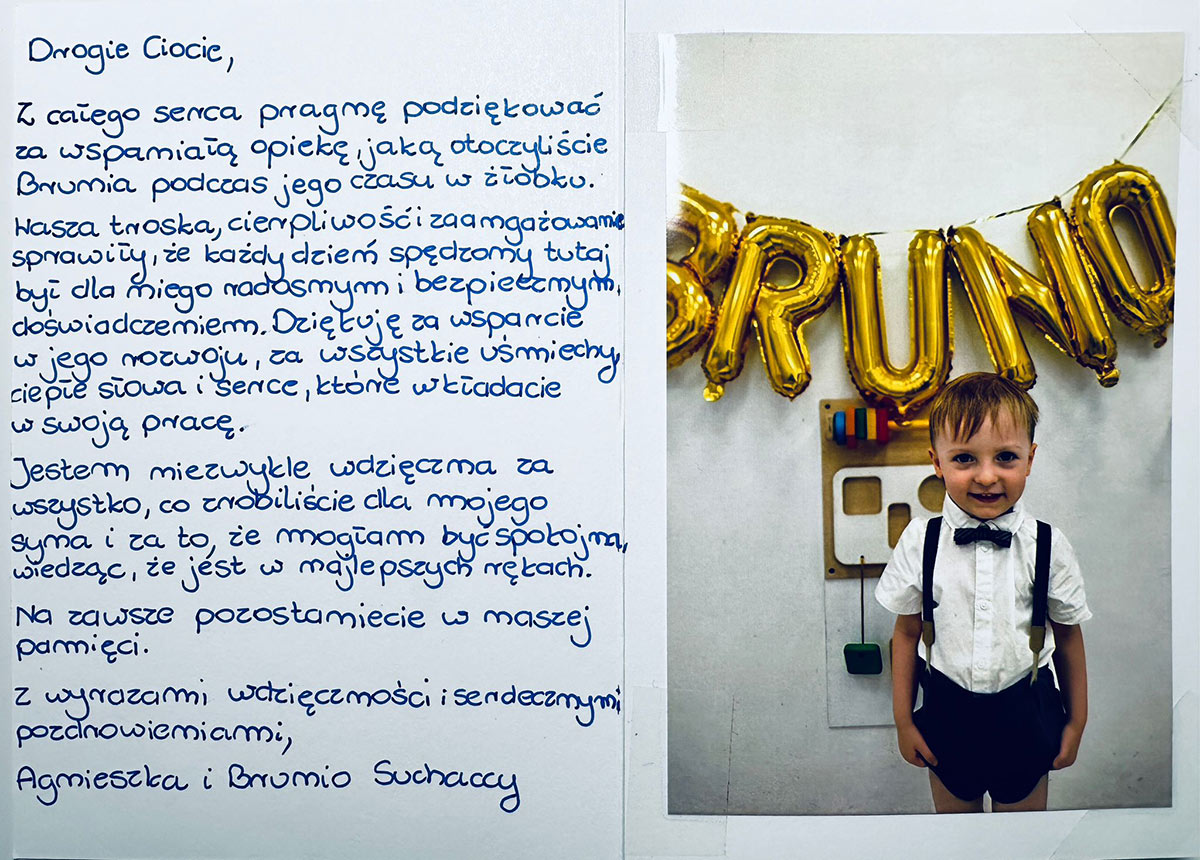 Drogie Ciocie,
Z całego serca pragnę podziękować
za wspaniałą opiekę, jaką otoczyliście
Brunia podczas jego czasu w żłobku.
Wasza troska, cierpliwość i zaangażowanie
sprawiły, że każdy dzień spędzony tutaj
był dla niego radosnym i bezpiecznym,
doświadczeniem. Dziękuję za wsparcie
w jego rozwoju, za wszystkie uśmiechy,
ciepłe słowa i serce, które wkładacie
w swoją pracę.
Jestem niezwykle wdzięczna za
wszystko, co zrobiliście dla mojego
syna i za to, że mogłam być spokojna,
wiedząc, że jest w najlepszych rękach.
Na zawsze pozostaniecie w naszej
pamięci.
Z wyrazami wdzięczności i serdecznymi
pozdrowieniami,
Agnieszka i Brunio Suchaccy
BRUNO